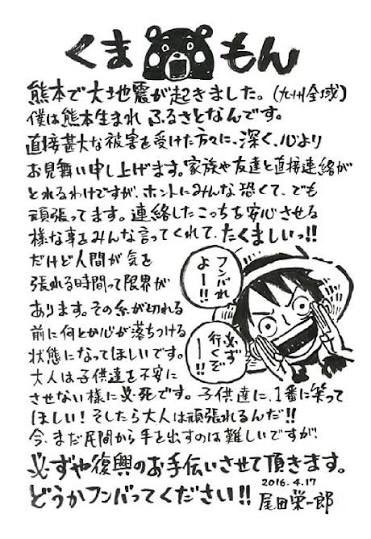 くまもん
熊本で大地震が起きました。(九州全域)
僕は熊本生まれ ふるさとなんです。
直接甚大な被害を受けた方々に、深く、心より
お見舞い申し上げます。家族や友達と直接連絡が
とれるわけですが、ホントにみんな恐くて、でも
頑張ってます。連絡したこっちを安心させる
様な事をみんな言ってくれて、たくましいっ!!
だけど人間が気を
張れる時間って限界が
あります。その糸が切れる
前に何とか心が落ちつける
状態になってほしいです。
大人は子供達を不安に
させない様に必死です。子供達に、1番に笑って
ほしい!そしたら大人は頑張れるんだ!!
今、まだ民間から手を出すのは難しいですが、
必ずや復興のお手伝いさせて頂きます。
どうかフンバってください!!
フンバれ
よー!!
必ず
行くぞ
ー!!
2016.4.17
尾田栄一郎